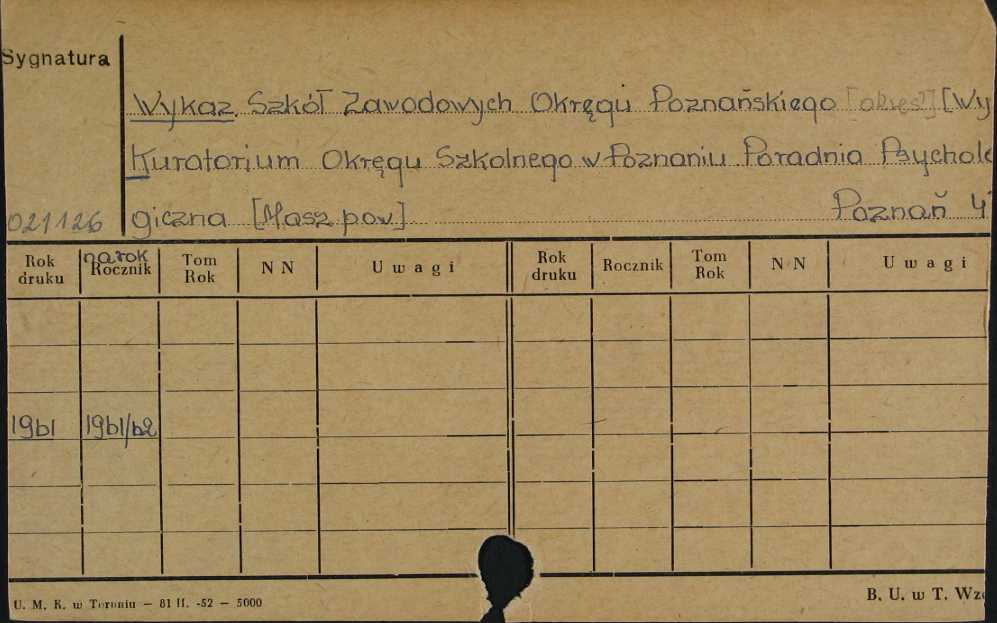 Sygnatura
Wykaz Szkół Zawodowych Okręgu Poznańskiego [okręs?] [Wy
Kuratorium Okręgu Szkolnego w Poznaniu Poradnia Psycholo
021126 giczna [Masz pow] Poznań 4°
Rok druku na rok Rocznik Tom Rok N N Uwagi Rok druku Rocznik Tom Rok N N Uwagi
1961 1961/62
U. M. K. w Toruniu — 81 II. -52 — 5000 B. U. w T. Wzó